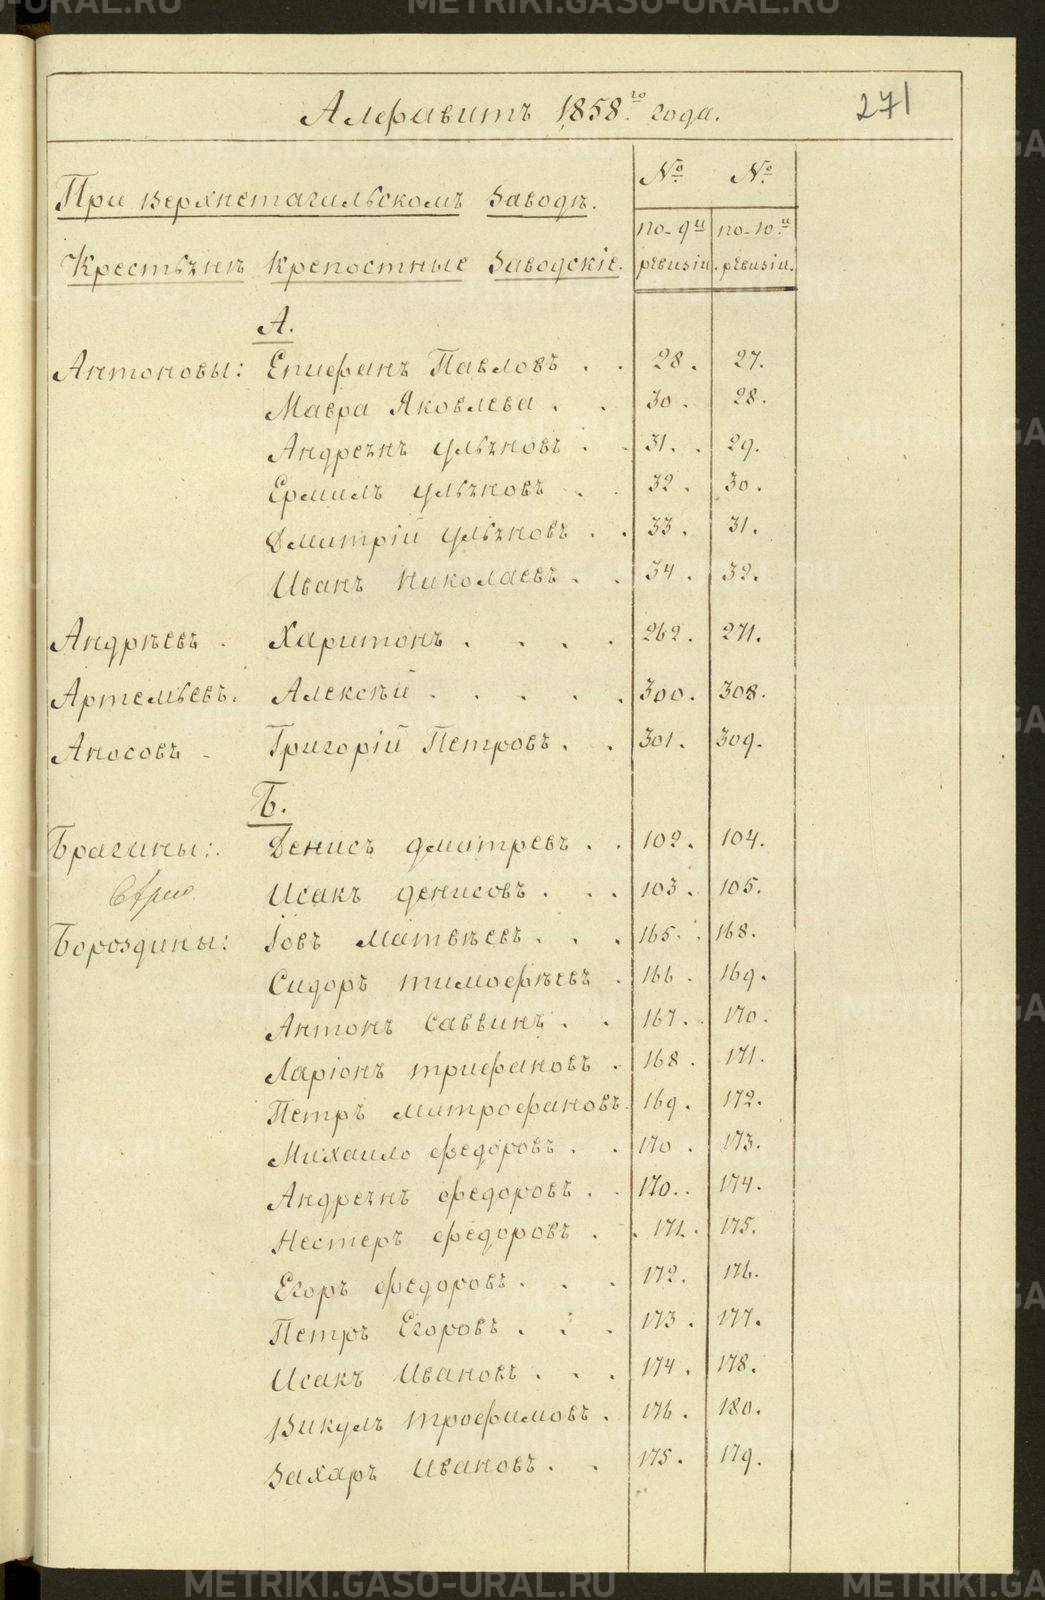 Алфавитъ 1858.го года.
271
При Верхнетагильскомъ Заводѣ.
№ №
по-9й по-10й
Крестьянѣ крепостные Заводскіе. ревизіи. ревизіи.
А.
Антоновы: Епифанъ Павловъ . . 28. 27.
Мавра Яковлева . . 30. 28.
Андреянъ Ульяновъ . . 31. 29.
Ермилъ Ульяновъ . . 32. 30.
Дмитрій Ульяновъ . . 33. 31.
Иванъ Николаевъ . . 34. 32.
Андрѣевъ . Харитонъ . . . . 262. 271.
Артемьевъ. Алексѣй . . . . . 300. 308.
Аносовъ - Григорій Петровъ . . 301. 309.
Б.
Брагины: Денисъ Дмитревъ . . 102. 104.
Исакъ Денисовъ . . . 103. 105.
Бороздины: Іовъ Матвѣевъ . . . 165. 168.
Сидоръ Тимофѣевъ . 166. 169.
Антонъ Саввинъ . . 167. 170.
Ларіонъ Трифановъ . 168. 171.
Петръ Митрофановъ. 169. 172.
Михаило Федоровъ . . 170. 173.
Андреянъ Федоровъ . . 170. 174.
Нестеръ Федоровъ . . 171. 175.
Егоръ Федоровъ . . . 172. 176.
Петръ Егоровъ . . . 173. 177.
Исакъ Ивановъ . . . 174. 178.
Викулъ Трофимовъ . 176. 180.
Захаръ Ивановъ . . 175. 179.
METRIKI.GASO-URAL.RU